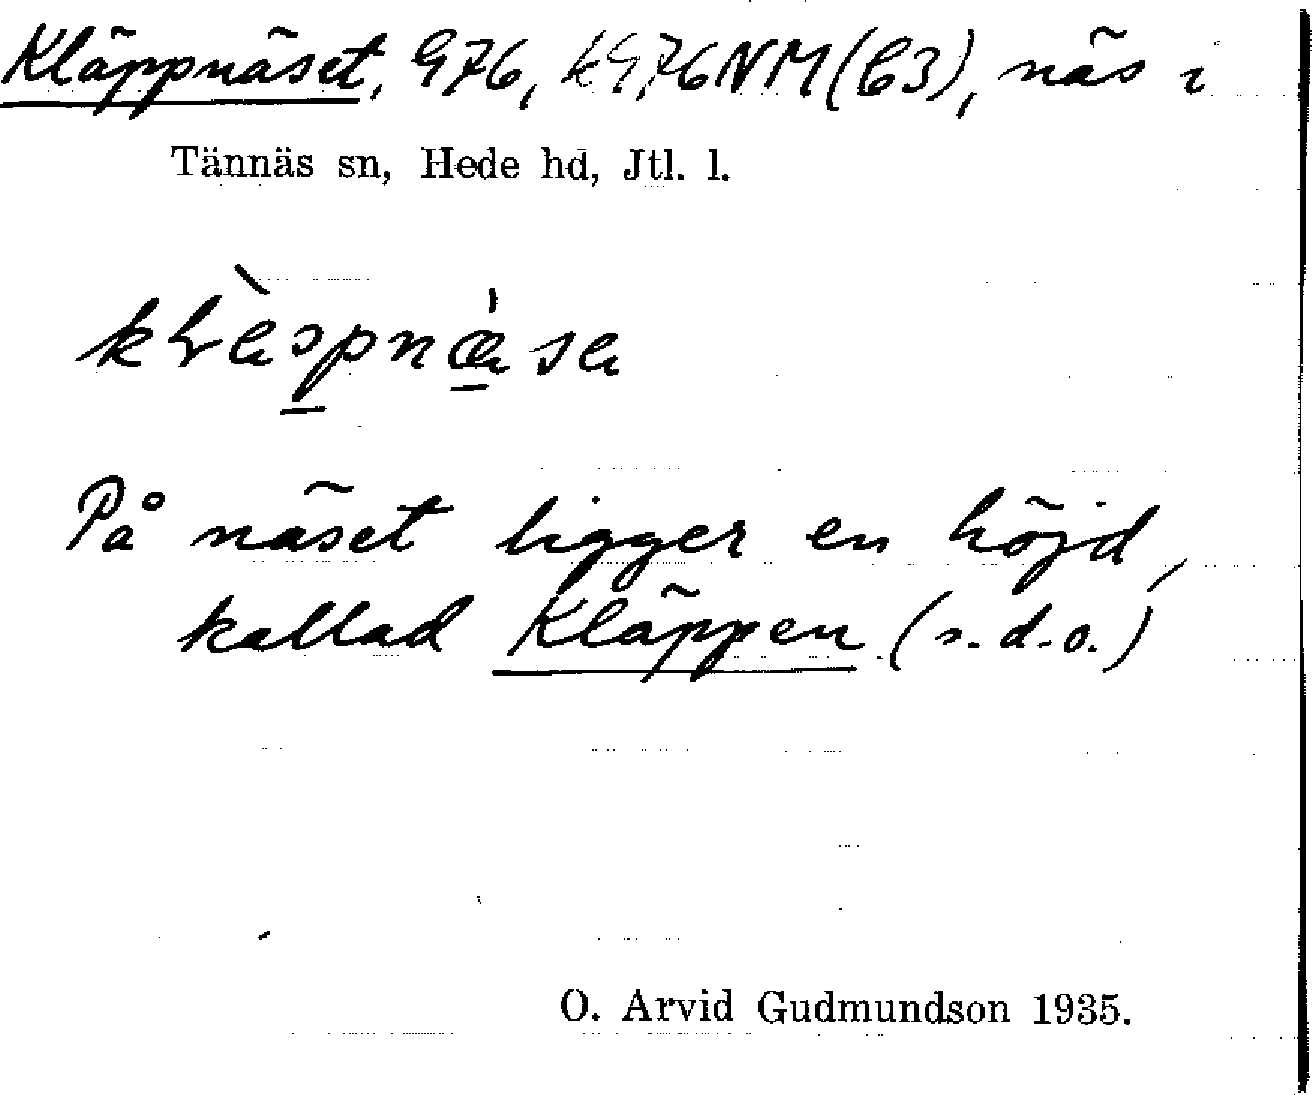 Kläppnäset, G76, kG76NM(C3), näs i
Tännäs sn, Hede hd, Jtl. l.
På näset ligger en höjd,
kallad Kläppen (s.d.o.)
O. Arvid Gudmundson 1935.